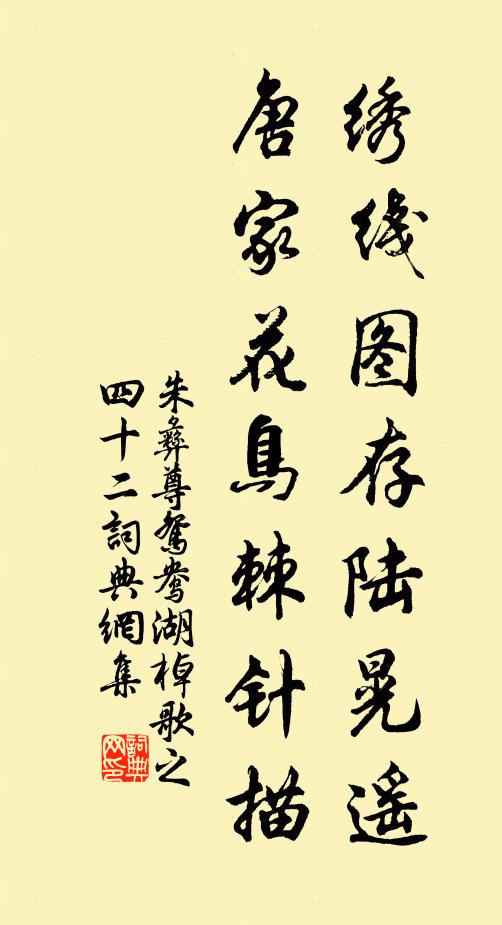 绣线图存陆晃遥
唐家花鳥棘针描
朱彝尊鴛鴦湖棹歌之
四十二詞典網集
詞典网印